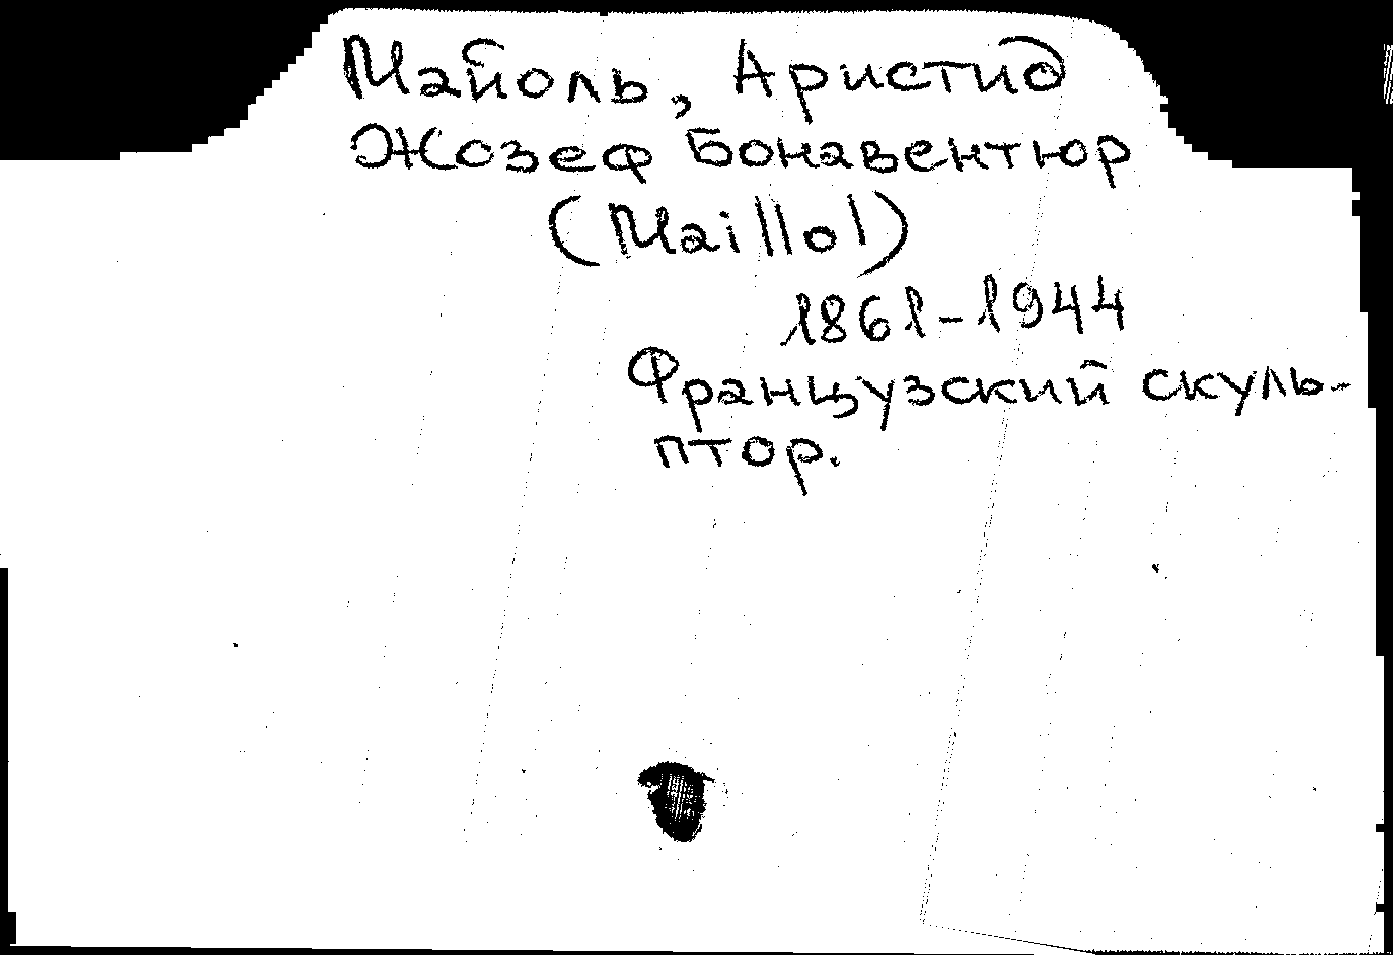 Майоль, Аристид
Жозеф Бонавентюр
(Maillol)
1861-1944
Французский скуль-
птор.